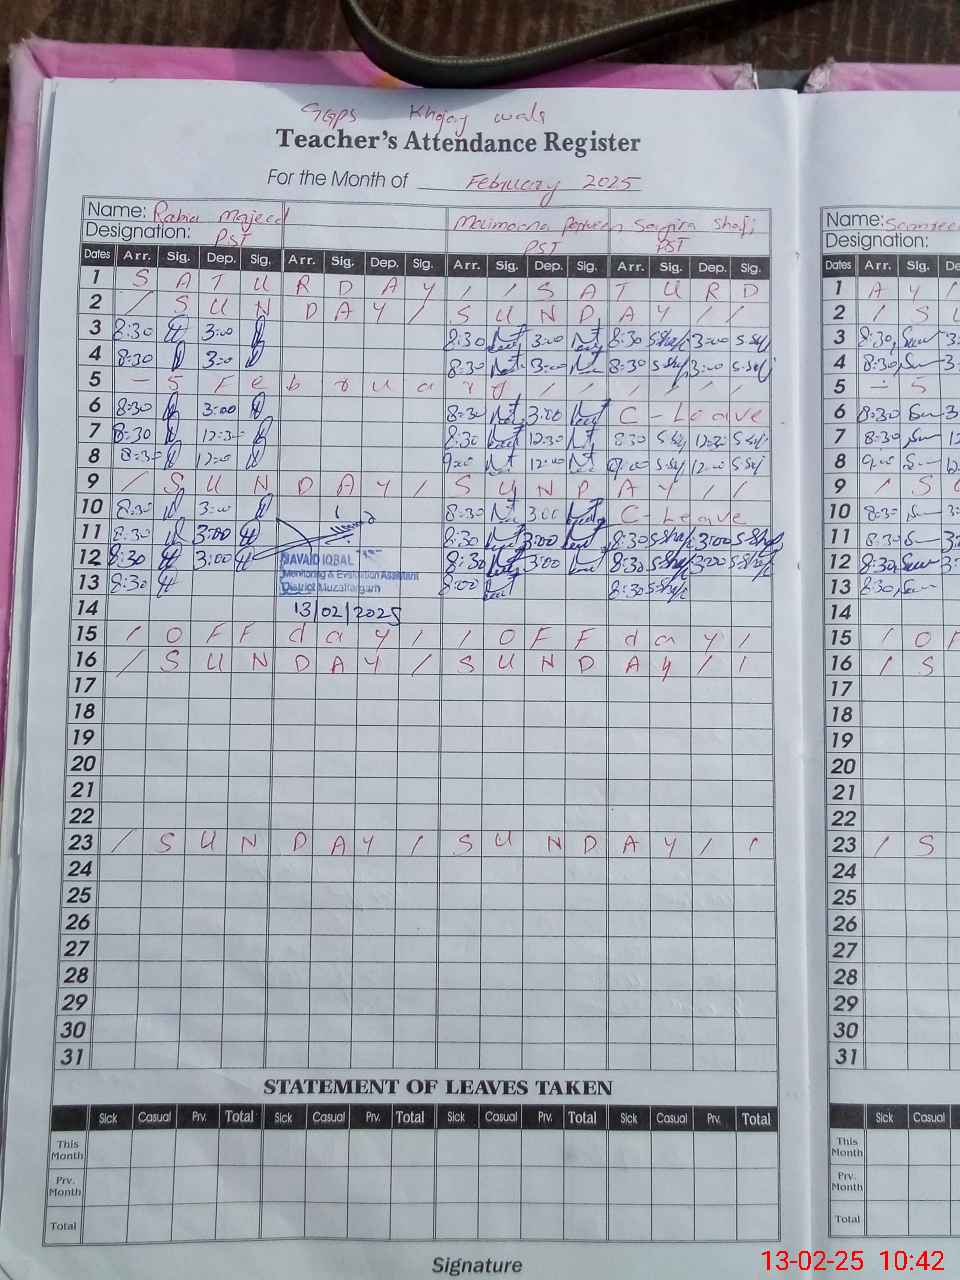 GGPS Khojay wala
Teacher's Attendance Register
For the Month of February 2025
Name: Rabia Majeed
Designation: PST PST PST
Dates Arr. Sig. Dep. Sig. Arr. Sig. Dep. Sig. Arr. Sig. Dep. Sig. Arr. Sig. Dep. Sig.
1 S A T U R D A Y / / S A T U R D
2 / S U N D A Y / S U N D A Y / /
3 8:30 3:00 8:30 3:00 8:30 3:00
4 8:30 3:00 8:30 3:00 8:30 3:00
5 - 5 F e b r u a r y / / / / / /
6 8:30 3:00 8:30 3:00 C - Leave
7 8:30 12:30 8:30 12:30 8:30 12:30
8 8:30 12:00 9:00 12:00 9:00 12:00
9 / S U N D A Y / S U N D A Y / /
10 8:30 3:00 8:30 3:00 C - Leave
11 8:30 3:00 8:30 3:00 8:30 3:00
12 8:30 3:00 8:30 3:00 8:30 3:00
JAVAID IQBAL
Monitoring & Evaluation Assistant
District Muzaffargarh
13 8:30 8:00 8:30
14 13/02/2025
15 / O F F d a y / / O F F d a y /
16 / S U N D A Y / S U N D A Y / /
17
18
19
20
21
22
23 / S U N D A Y / S U N D A Y / /
24
25
26
27
28
29
30
31
STATEMENT OF LEAVES TAKEN
Sick Casual Prv. Total Sick Casual Prv. Total Sick Casual Prv. Total Sick Casual Prv. Total
This Month
Prv. Month
Total
Signature
Name:
Designation:
Dates Arr. Sig.
1 A Y /
2 / S U
3 8:30
4 8:30
5 - 5
6 8:30
7 8:30
8 9:00
9 / S
10 8:30
11 8:30
12 8:30
13 8:30
14
15 / O F
16 / S
17
18
19
20
21
22
23 / S
24
25
26
27
28
29
30
31
Sick Casual
This Month
Prv. Month
Total
13-02-25 10:42